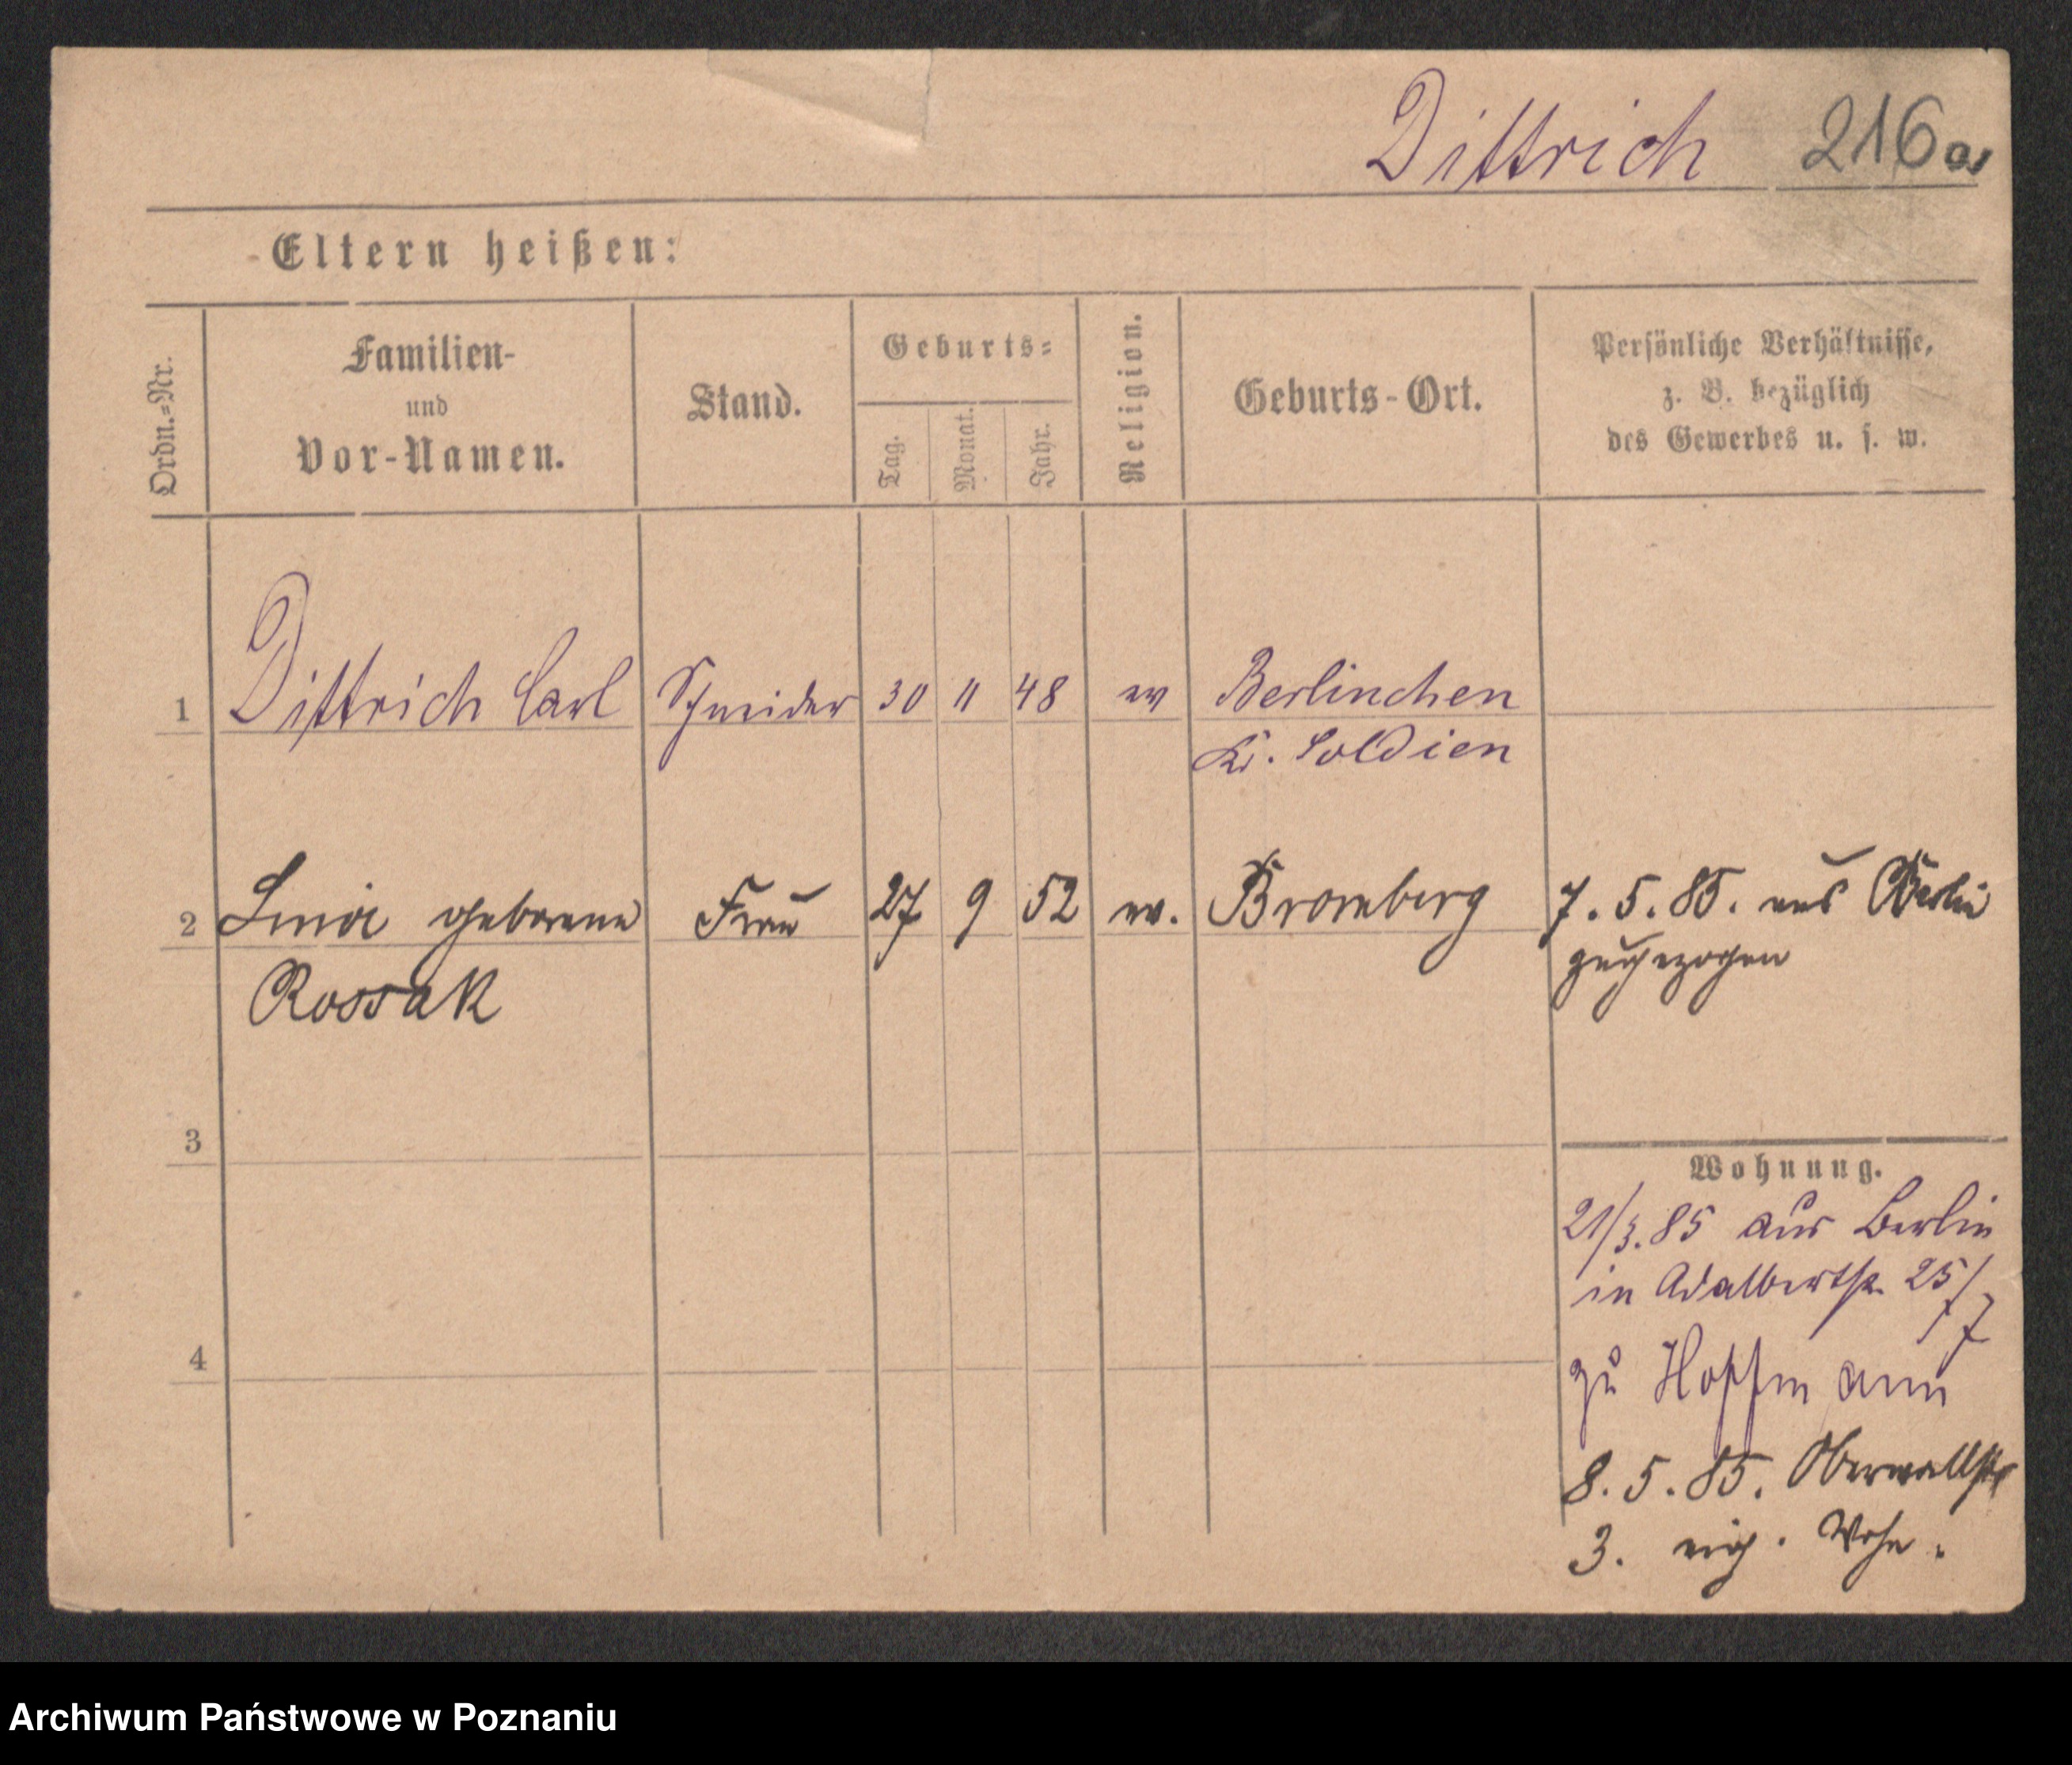 Dittrich 216a
Eltern heißen:
Ordn.=Nr.
Familien-
und
Vor-Namen.
Stand.
Geburts=
Tag.
Monat.
Jahr.
Religion.
Geburts-Ort.
Persönliche Verhältnisse,
z. B. bezüglich
des Gewerbes u. s. w.
1 Dittrich Carl Schneider 30 11 48 ev Berlinchen
Kr. Soldien
2 geborene Frau 27 9 52 ev. Bromberg 7. 5. 85. aus Berlin
Rossak zugezogen
3
Wohnung.
21/3. 85 aus Berlin
in Adalbertstr. 25/7
4
zu Hoffmann
8. 5. 85. Oberwallstr
3. eig. Wohn.
Archiwum Państwowe w Poznaniu